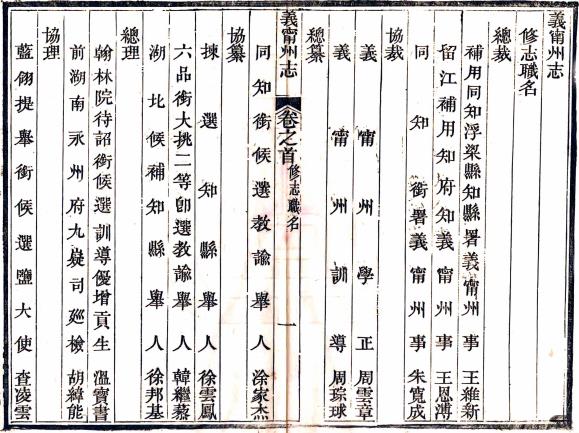 義甯州志
修志職名
總裁
補用同知浮梁縣知縣署義甯州事 王維新
留江補用知府知義甯州事 王恩溥
同知銜署義甯州事 朱寬成
協裁
義甯州學正 周雲章
義甯州訓導 周琮球
總纂
義甯州志 卷之首 修志職名 一
同知銜候選教諭舉人 涂家杰
協纂
揀選知縣舉人 徐雲鳳
六品銜大挑二等卽選教諭舉人 韓繼蕃
湖北候補知縣舉人 徐邦基
總理
翰林院待詔銜候選訓導優增貢生 溫寶書
前湖南永州府九嶷司廵檢 胡緯能
協理
藍翎提舉銜候選鹽大使 查凌雲